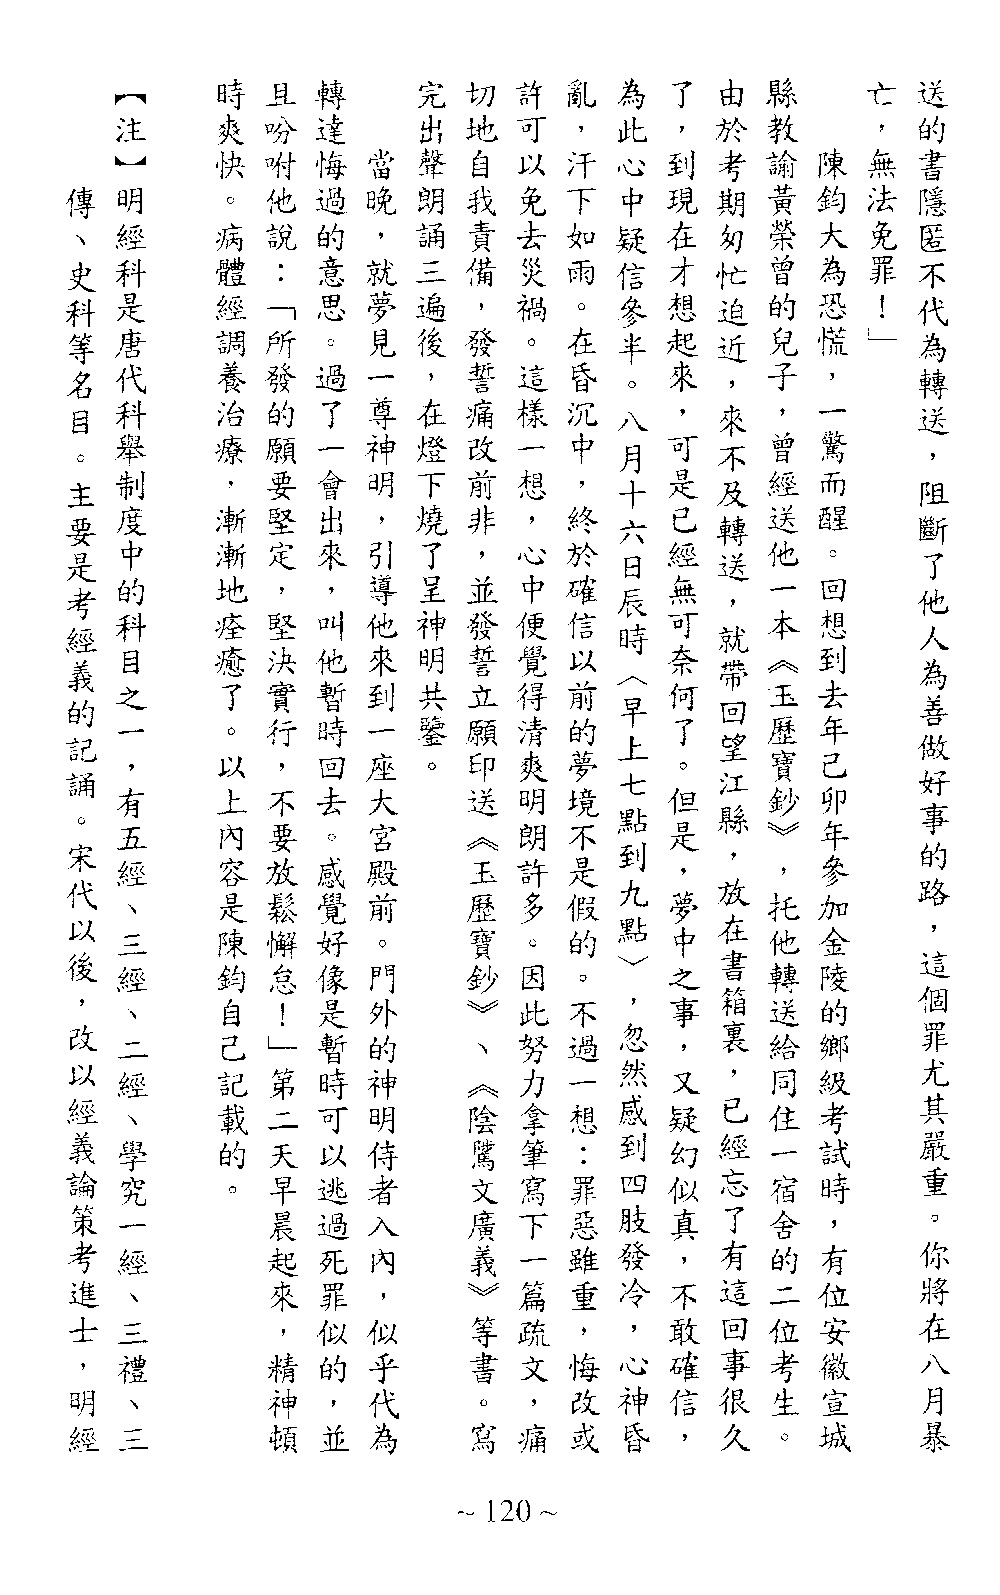 送的書隱匿不代為轉送，阻斷了他人為善做好事的路，這個罪尤其嚴重。你將在八月暴
亡，無法免罪！」
陳鈞大為恐慌，一驚而醒。回想到去年己卯年參加金陵的鄉級考試時，有位安徽宣城
縣教諭黃榮曾的兒子，曾經送他一本《玉歷寶鈔》，托他轉送給同住一宿舍的二位考生。
由於考期匆忙迫近，來不及轉送，就帶回望江縣，放在書箱裏，已經忘了有這回事很久
了，到現在才想起來，可是已經無可奈何了。但是，夢中之事，又疑幻似真，不敢確信，
為此心中疑信參半。八月十六日辰時〈早上七點到九點〉，忽然感到四肢發冷，心神昏
亂，汗下如雨。在昏沉中，終於確信以前的夢境不是假的。不過一想：罪惡雖重，悔改或
許可以免去災禍。這樣一想，心中便覺得清爽明朗許多。因此努力拿筆寫下一篇疏文，痛
切地自我責備，發誓痛改前非，並發誓立願印送《玉歷寶鈔》、《陰騭文廣義》等書。寫
完出聲朗誦三遍後，在燈下燒了呈神明共鑒。
當晚，就夢見一尊神明，引導他來到一座大宮殿前。門外的神明侍者入內，似乎代為
轉達悔過的意思。過了一會出來，叫他暫時回去。感覺好像是暫時可以逃過死罪似的，並
且吩咐他說：「所發的願要堅定，堅決實行，不要放鬆懈怠！」第二天早晨起來，精神頓
時爽快。病體經調養治療，漸漸地痊癒了。以上內容是陳鈞自己記載的。
【注】明經科是唐代科舉制度中的科目之一，有五經、三經、二經、學究一經、三禮、三
傳、史科等名目。主要是考經義的記誦。宋代以後，改以經義論策考進士，明經
~120~